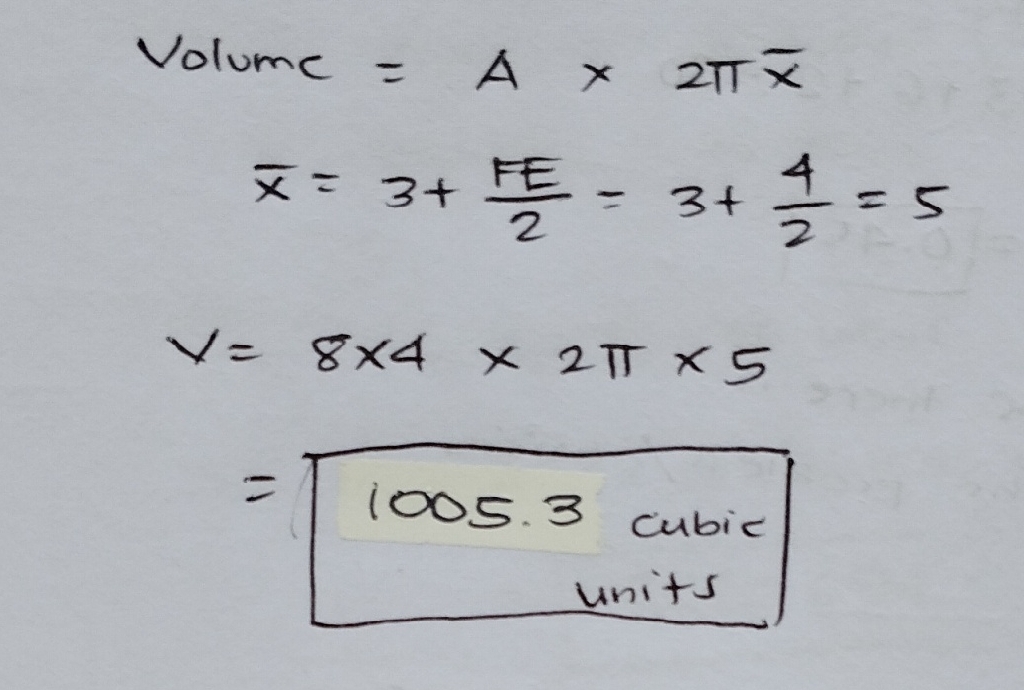 Volume = A × 2π x̄
x̄ = 3+ FE/2 = 3+ 4/2 = 5
V= 8×4 × 2π × 5
= 1005.3 cubic
units